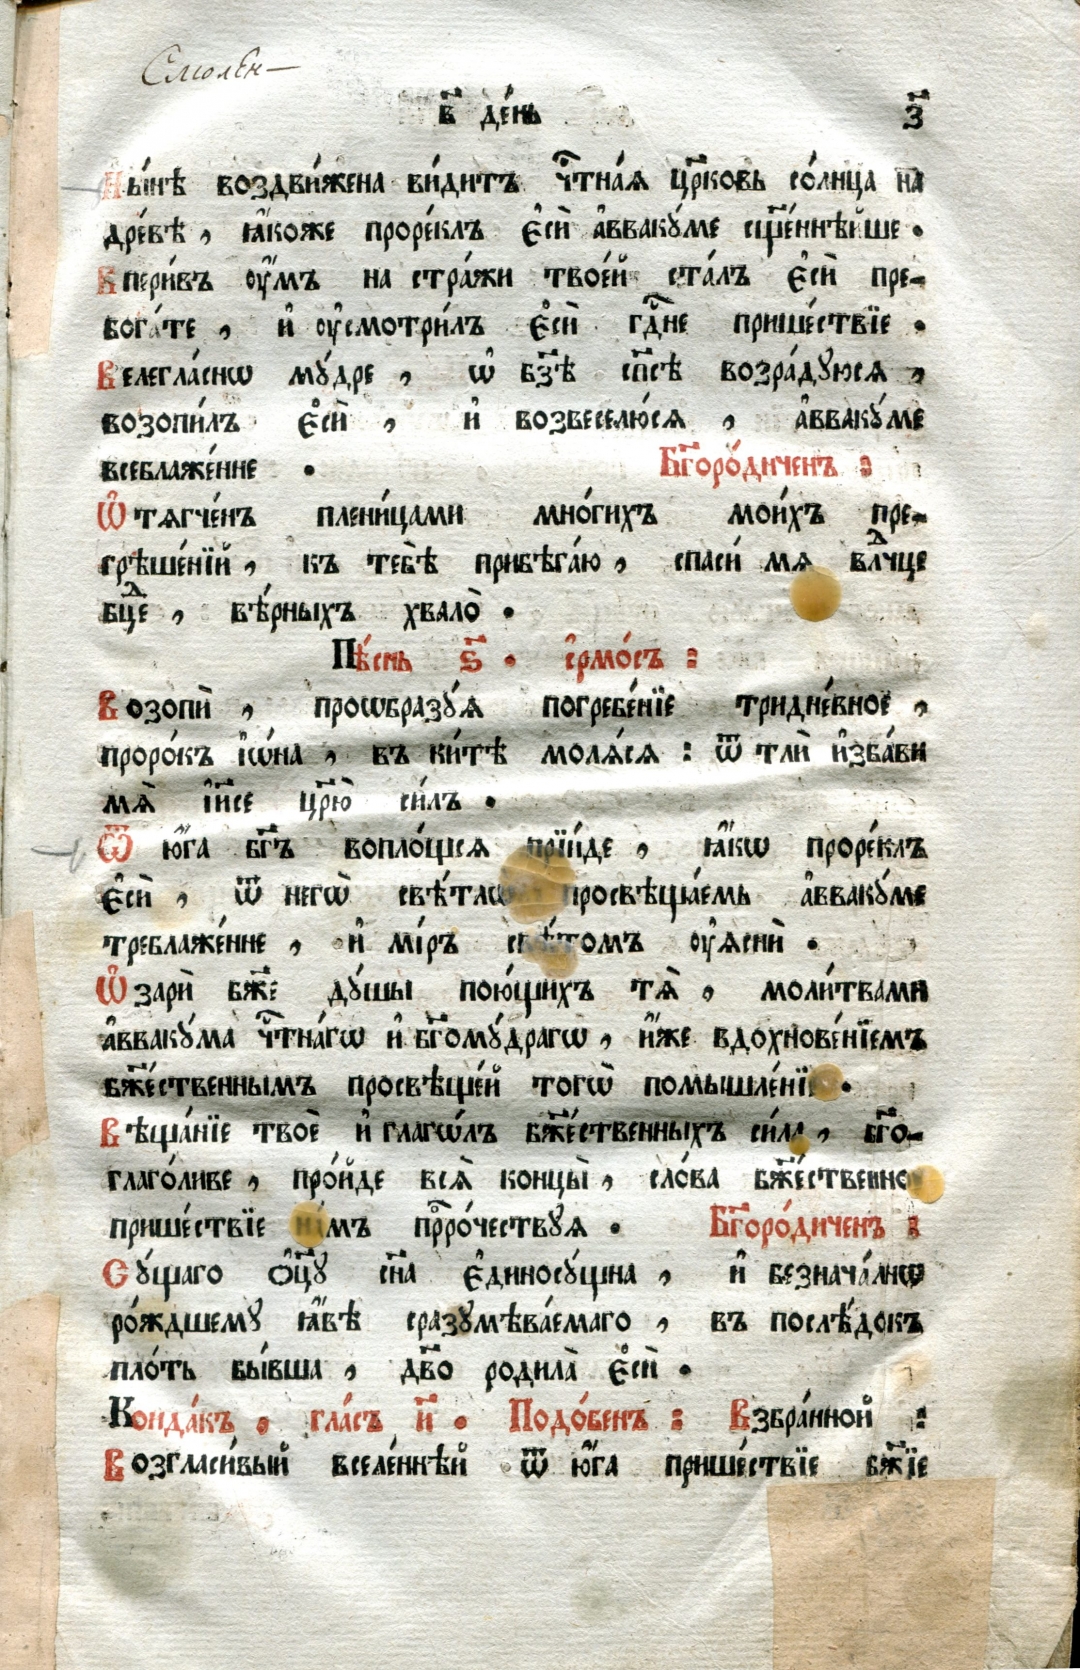 Смолен
в҃ де́нь з҃
Ны́нѣ воздви́жена ви́дитъ чⷭ҇тна́ѧ цр҃ковь со́лнца на
дре́вѣ , ꙗ҆́коже проре́клъ є҆сѝ а҆ввакꙋ́ме сщ҃е́ннѣйше .
Впери́въ ᲂу҆́мъ на стра́жи твое́й ста́лъ є҆сѝ пре-
бога́те , и҆ ᲂу҆смотри́лъ є҆сѝ гдⷭ҇не прише́ствїе .
Велегла́снѡ мꙋ́дре , ѡ҆ бз҃ѣ сп҃сѣ возра́дꙋюсѧ ,
возопи́лъ є҆сѝ , и҆ возвеселю́сѧ , а҆ввакꙋ́ме
всеблаже́нне . Бг҃оро́диченъ :
Ѡ҆тѧгче́нъ плени́цами мно́гихъ мои́хъ пре-
грѣше́нїй , къ тебѣ̀ прибѣга́ю , спаси́ мѧ влⷣчце
бцⷣе , вѣ́рныхъ хвало̀ .
Пѣ́снь ѕ҃ . і҆рмо́съ :
Возопѝ , проѡбразꙋ́ѧ погребе́нїе тридне́вное ,
проро́къ і҆ѡ́на , въ ки́тѣ молѧ́сѧ : ѿ тлѝ и҆зба́ви
мѧ̀ і҆и҃се цр҃ю̀ си́лъ .
Ѿ ю҆́га бг҃ъ вопло́щсѧ прїи́де , ꙗ҆́кѡ проре́клъ
є҆сѝ , ѿ негѡ̀ свѣ́тлѡ просвѣща́емь а҆ввакꙋ́ме
треблаже́нне , и҆ мі́ръ свѣ́томъ ᲂу҆ѧснѝ .
Ѡ҆зарѝ бж҃е дꙋ́шы пою́щихъ тѧ̀ , моли́твами
а҆ввакꙋ́ма чⷭ҇тна́гѡ и҆ бг҃омꙋ́драгѡ , и҆́же вдохнове́нїемъ
бж҃е́ственнымъ просвѣще́й тогѡ̀ помышле́нїѧ .
Вѣща́нїе твоѐ и҆ глаго́лъ бж҃е́ственныхъ си́ла , бг҃о-
глаго́ливе , про́йде всѧ̀ концы̀ , сло́ва бж҃е́ственное
прише́ствїе на́мъ прⷪ҇ро́чествꙋѧ . Бг҃оро́диченъ :
Сꙋ́щаго ѻ҆ц҃ꙋ̀ сн҃а є҆диносꙋ́щна , и҆ безнача́лнѡ
ро́ждшемꙋ ꙗ҆́вѣ сразꙋмѣва́емаго , въ послѣ́докъ
пло́ть бы́вша , дв҃о родила̀ є҆сѝ .
Конда́къ . гла́съ и҃ . Подо́бенъ : Взбра́нной :
Возгласи́вый вселе́ннѣй ѿ ю҆́га прише́ствїе бж҃їе